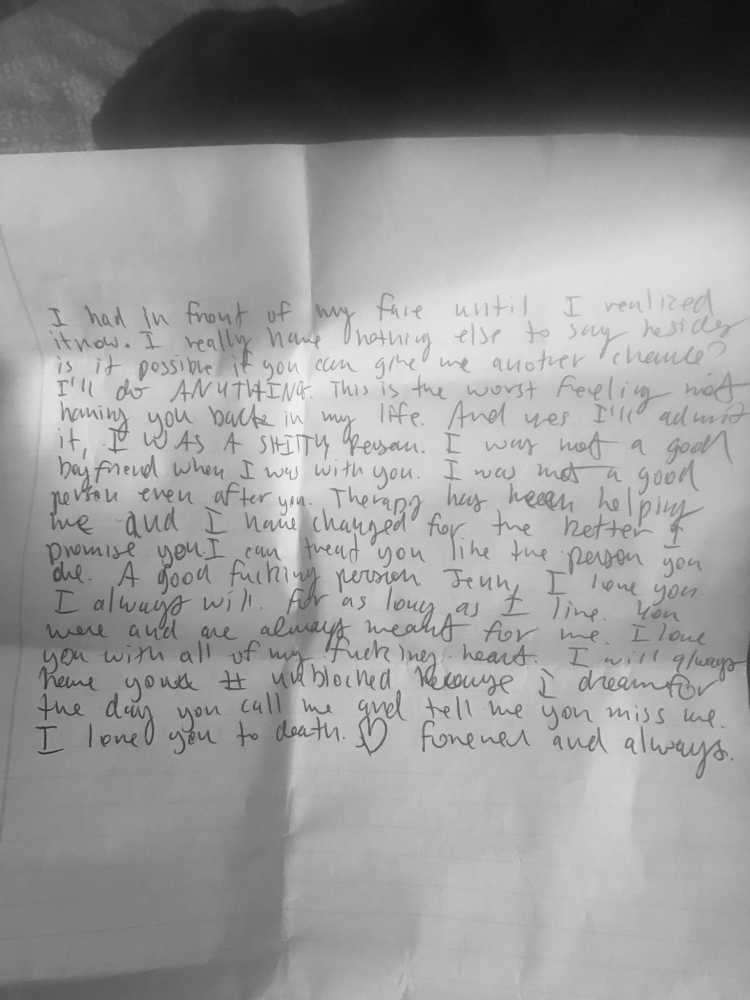 I had in front of my face until I realized
it now. I really have nothing else to say besides
is it possible if you can give me another chance?
I'll do ANYTHING. This is the worst feeling not
having you back in my life. And yes I'll admit
it, I WAS A SHITTY Person. I was not a good
boyfriend when I was with you. I was not a good
person even after you. Therapy has been helping
me and I have changed for the better I
promise you. I can treat you like the person you
are. A good fucking person Jenn, I love you
I always will. For as long as I live. You
were and are always meant for me. I love
you with all of my fucking heart. I will always
have your # unblocked because I dream for
the day you call me and tell me you miss me.
I love you to death. ♡ forever and always.